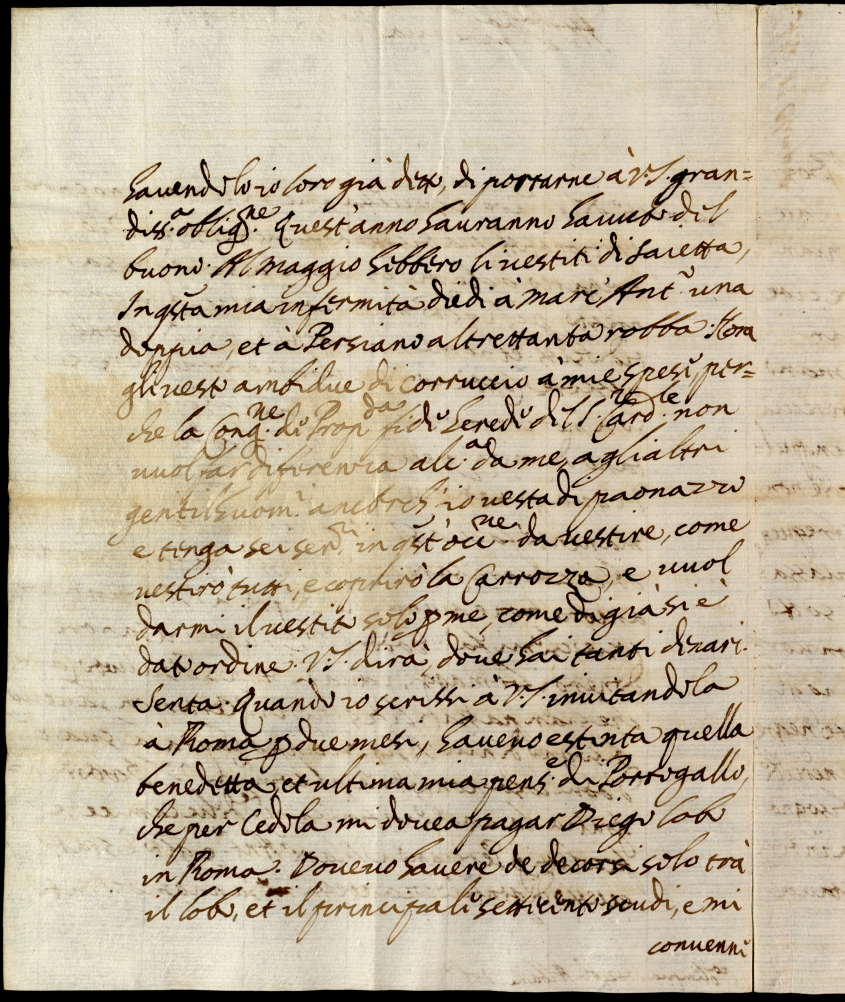 havendolo io loro già detto, di portarne à V.S. gran=
diss.ᵃ oblig.ⁿᵉ Quest'anno hauranno havuto del
buono. Al Maggio hebbero li vestiti di saietta,
In q̃sta mia infermità diedi à Marc'Ant.º una
doppia, et à Persiano altrettanta robba. Hora
gli vesto ambidue di corruccio à mie spese, per=
che la Cong.ⁿᵉ de Prop.ᵈᵃ fide herede del S.ʳ Card.ˡᵉ non
vuol far diferenza alc.ᵃ da me, agli altri
gentilhuomi, ancorch'io vesta di paonazzo
e tenga sei ser.ʳⁱ in q̃st'occ.ⁿᵉ da vestire, come
vestirò tutti, e coprirò la Carrozza, e vuol
darmi il vestito solo ꝑ me, come di già si è
dato ordine. V.S. dirà, dove hai tanti denari.
Senta. Quando io scrissi à V.S. invitandola
à Roma ꝑ due mesi, havevo estinta quella
benedetta, et ultima mia pens.ᵉ di Portogallo,
che per Cedola mi dovea pagar Diego lobo
in Roma. Dovevo havere de decorsi solo trà
il lobo, et il principale settecento scudi, e mi
convenne